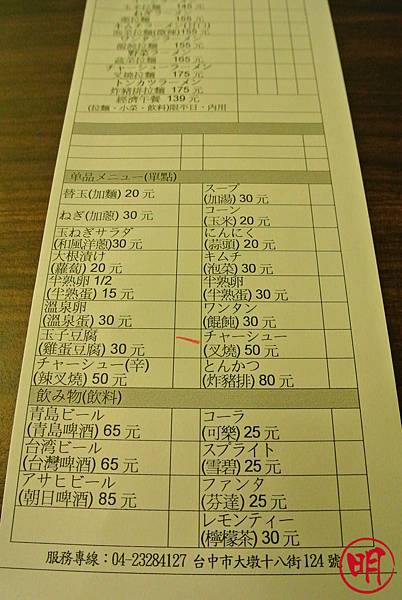 玉子拉麵 145 元
ねぎラーメン
蔥拉麵 155 元
キムチラーメン(辛口)
泡菜拉麵(微辣)155 元
餛飩拉麵 155 元
野菜ラーメン
蔬菜拉麵 165 元
チャーシューラーメン
叉燒拉麵 175 元
トンカツラーメン
炸豬排拉麵 175 元
經濟午餐 139 元
(拉麵、小菜、飲料)限平日、內用
单品メニュー(單點)
替玉(加麵) 20 元
スープ
(加湯) 30 元
ねぎ(加蔥) 30 元
コーン
(玉米) 20 元
玉ねぎサラダ
(和風洋蔥)30 元
にんにく
(蒜頭) 20 元
大根漬け
(蘿蔔) 20 元
キムチ
(泡菜) 30 元
半熟卵 1/2
(半熟蛋) 15 元
半熟卵
(半熟蛋) 30 元
溫泉卵
(溫泉蛋) 30 元
ワンタン
(餛飩) 30 元
玉子豆腐
(雞蛋豆腐) 30 元
チャーシュー
(叉燒) 50 元
チャーシュー(辛)
(辣叉燒) 50 元
とんかつ
(炸豬排) 80 元
飲み物(飲料)
青島ビール
(青島啤酒) 65 元
コーラ
(可樂) 25 元
台湾ビール
(台灣啤酒) 65 元
スプライト
(雪碧) 25 元
アサヒビール
(朝日啤酒) 85 元
ファンタ
(芬達) 25 元
レモンティー
(檸檬茶) 30 元
服務專線：04-23284127 台中市大墩十八街 124 號
明